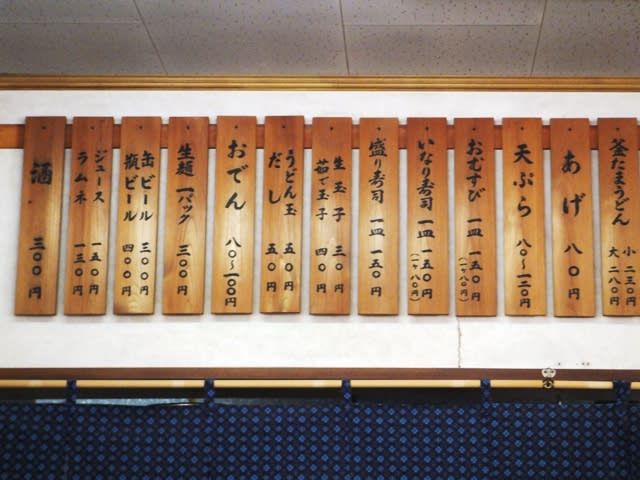 釜たまうどん
小 二三〇円
大 二八〇円
あげ 八〇円
天ぷら 八〇〜一二〇円
おむすび 一皿 一五〇円
(一ケ八〇円)
いなり寿司 一皿 一五〇円
(一ケ八〇円)
盛り寿司 一皿 一五〇円
生玉子 三〇円
茹で玉子 四〇円
うどん玉 五〇円
だし 五〇円
おでん 八〇〜一〇〇円
生麺 一パック 三〇〇円
缶ビール 三〇〇円
瓶ビール 四〇〇円
ジュース 一五〇円
ラムネ 一三〇円
酒 三〇〇円